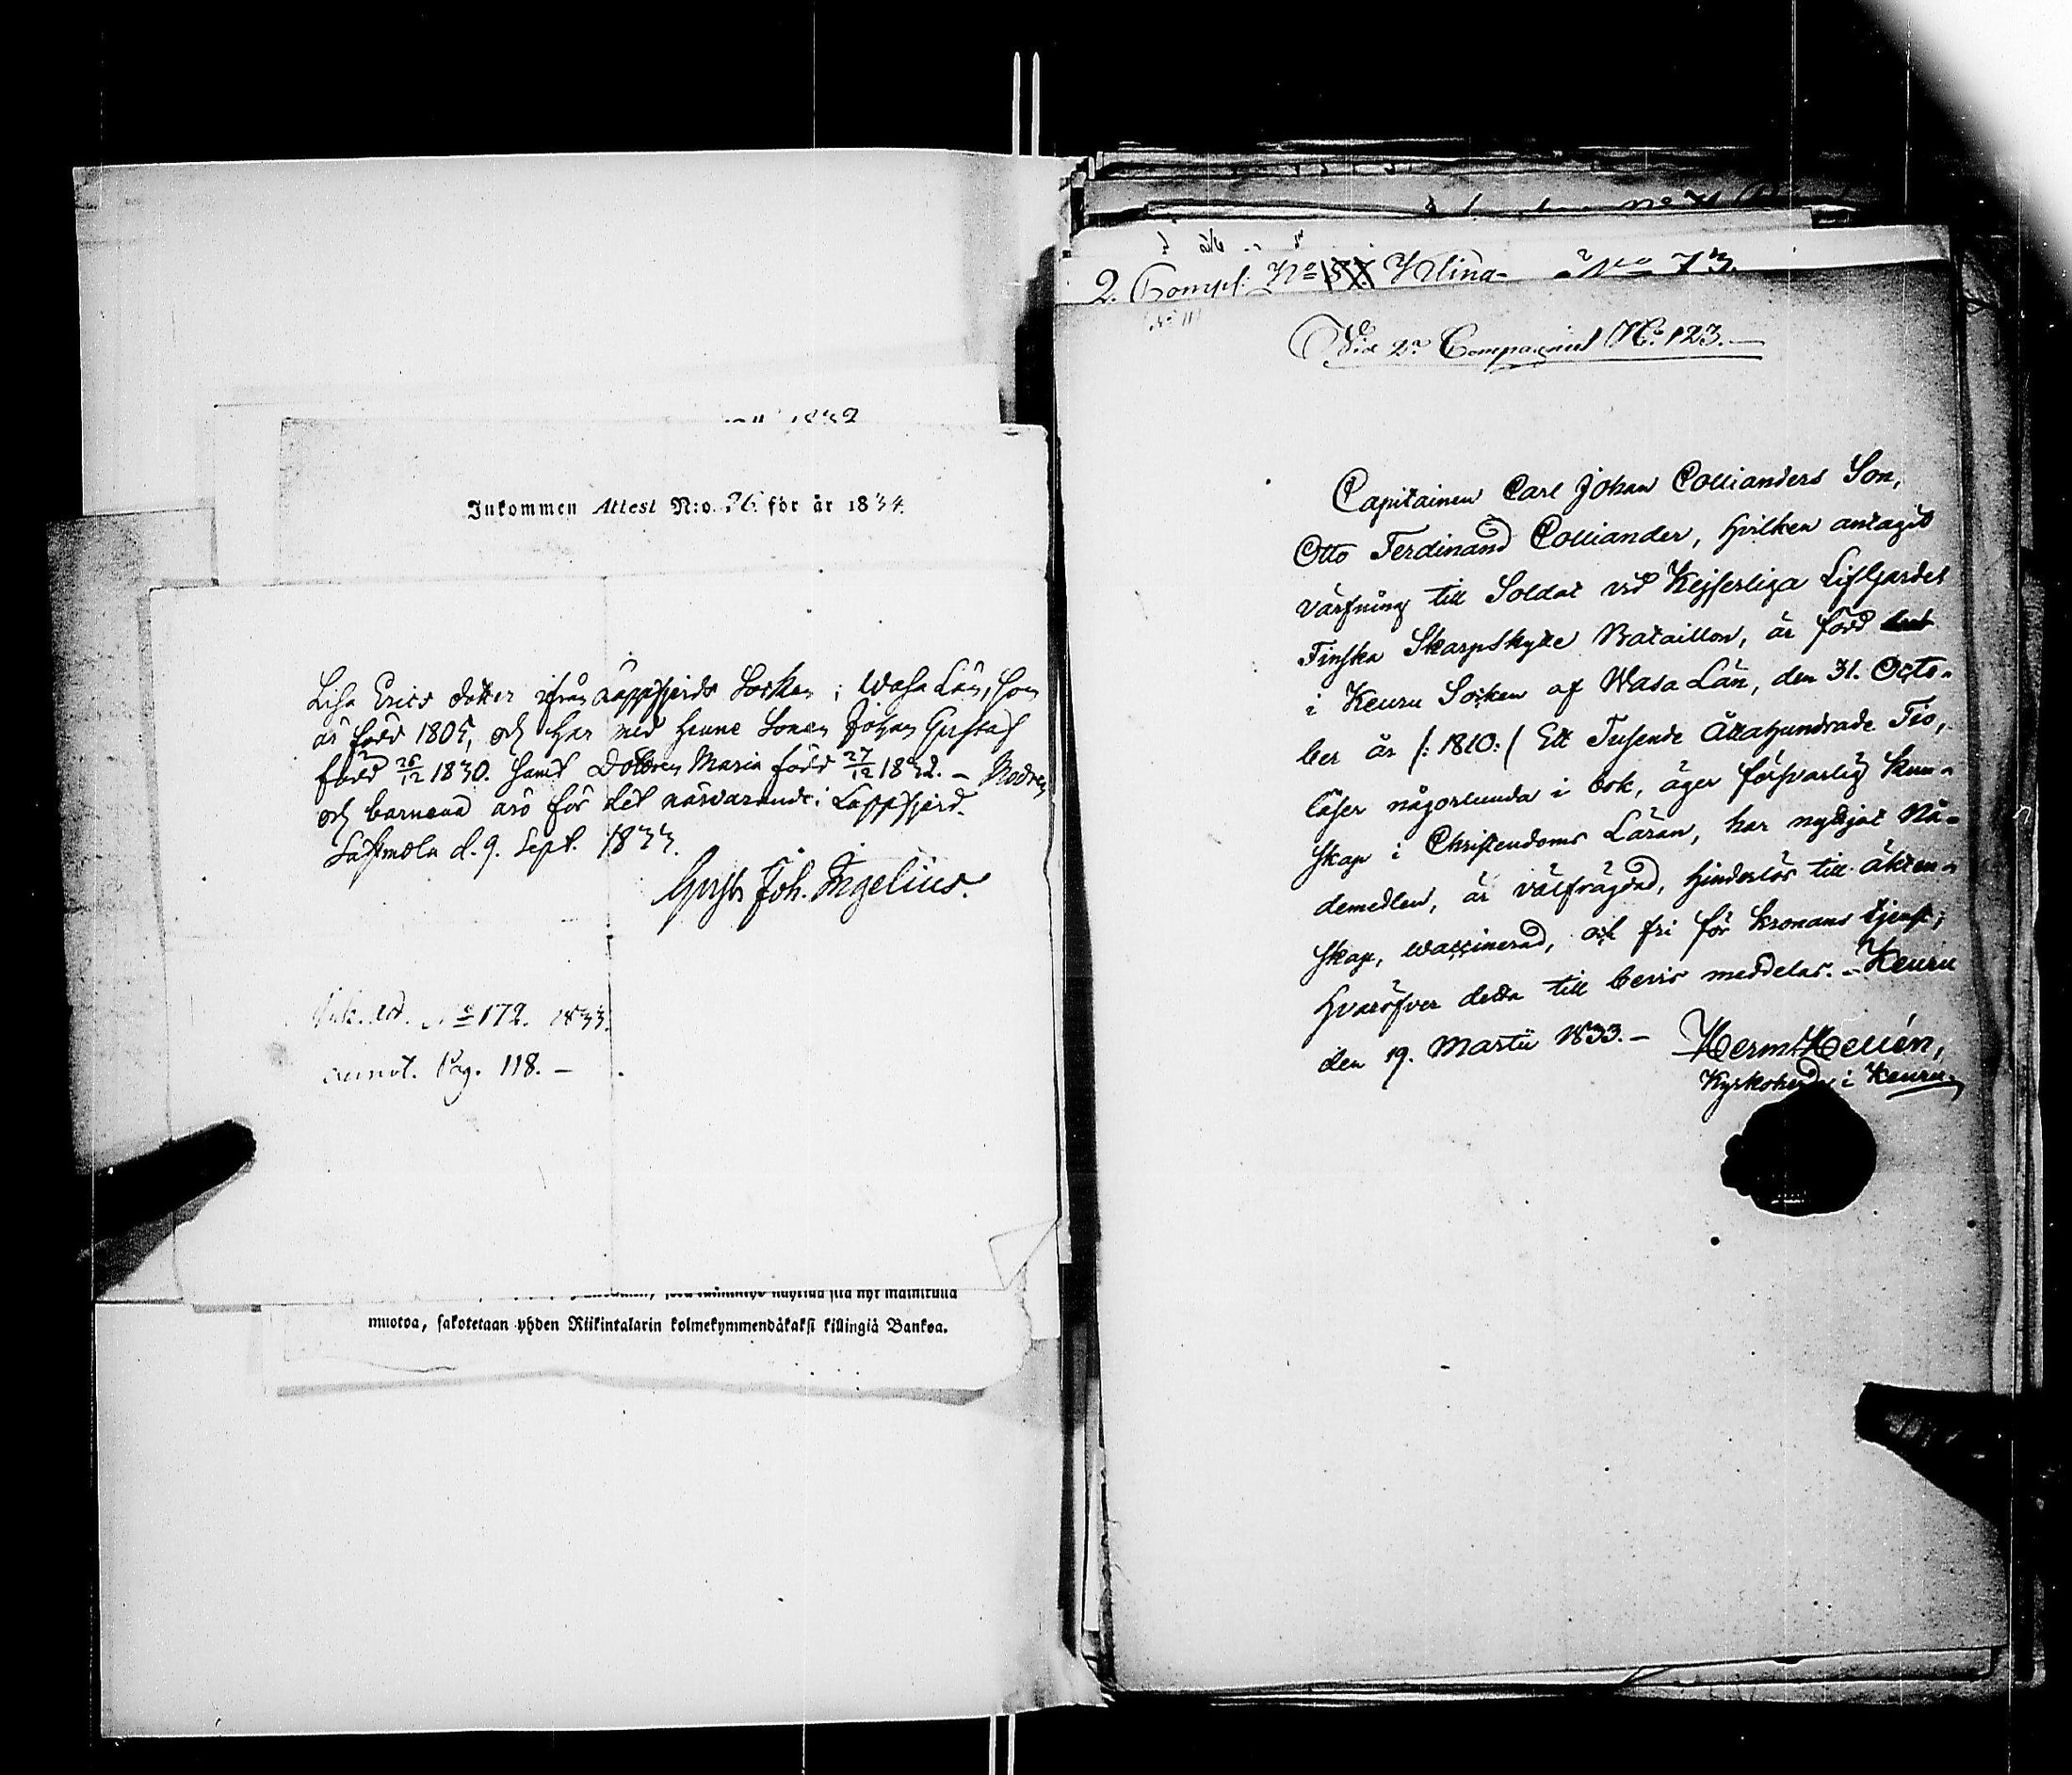 1832
Inkommen Attest N:o. 26 för år 1834.
Lisa Erics dotter ifrån Lappfjerds Socken i Wasa Län, som
är född 1805, och har med henne Sonen Johan Gustaf
född 26/12 1830. samt Dottren Maria född 27/12 1832. – Modren
och barnena äro för det närvarande i Lappfjerd.
Sastmola d. 9. Sept. 1833.
Gust. Joh. Ingelius.
No 172. 1833.
annot. Pag. 118. –
muotoa, sakotetaan yhden Riikintalarin kolmekymmendäkaksi killingiä Bankoa.
2. Comp: No Kling No 73.
(No 11)
Vid 2a Compagniet No. 123.
Capitainen Carl Johan Collianders Son,
Otto Ferdinand Colliander, hvilken antagit
värfning till Soldat vid Kejserliga Lifgardets
Finska Skarpskytte Bataillon, är född
i Keuru Socken af Wasa Län, den 31. Octo-
ber år /: 1810:/ Ett Tusende Åttahundrade Tio,
läser någorlunda i bok, äger försvarlig kun-
skap i Christendoms Läran, har nyttjat Nå-
demedlen, är välfrägdad, hinderlös till äkten-
skap, waccinerad, och fri för kronans tjenst;
hvaröfver detta till bevis meddelas. – Keuru
den 19. Martii 1833. – Herm. Hellén,
Kyrkoherde i Keuru.